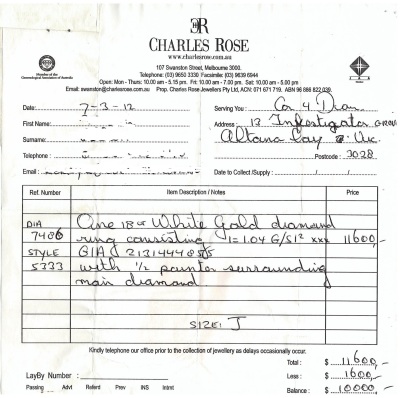 CR
CHARLES ROSE
www.charlesrose.com.au
107 Swanston Street, Melbourne 3000.
Telephone: (03) 9650 3330 Facsimile: (03) 9639 6944
Open: Mon - Thurs: 10.00 am - 5.15 pm. Fri: 10.00 am - 7.00 pm. Sat: 10.00 am - 5.00 pm
Email: swanston@charlesrose.com.au Prop. Charles Rose Jewellers Pty Ltd, ACN: 071 671 719. ABN 96 886 822 039.
Member of the
Gemmological Association of Australia
Date: 7-3-12
Serving You Con & Dian
First Name:
Address: 13 Investigator
Surname:
Altona Vic.
Telephone :
Postcode: 3028
Email :
Date to Collect /Supply : / /
Ref. Number Item Description / Notes Price
DIA One 18ct White Gold diamond
7486 ring consisting 1=1.04 G/SI2 xxx 11600,-
STYLE GIA
5333 with 1/2 pointer surrounding
main diamond
SIZE: J
Kindly telephone our office prior to the collection of jewellery as delays occasionally occur.
Total : $ 11600,-
LayBy Number :
Less : $ 1600,-
Passing Advt Referd Prev INS Intmt
Balance : $ 10000,-